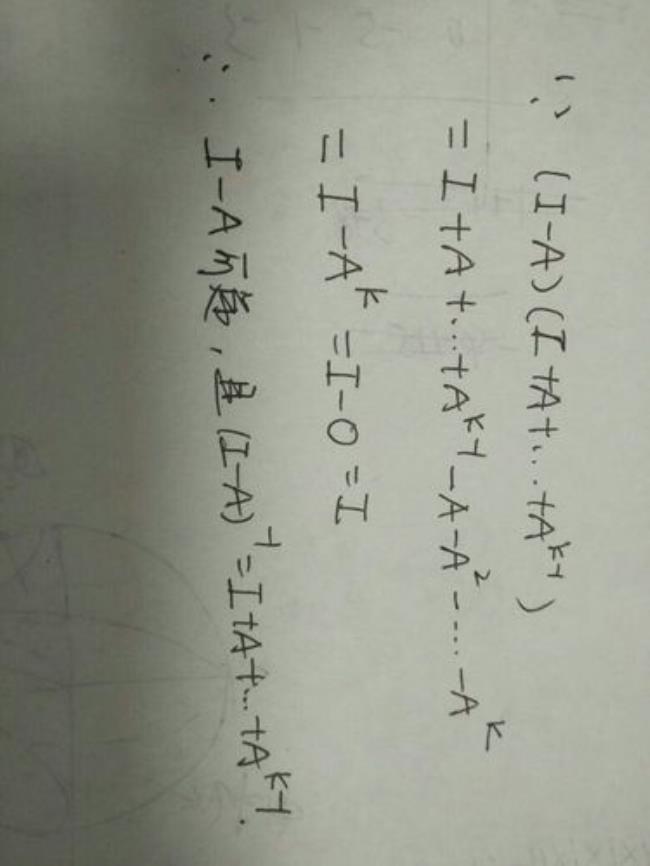 ∵ (I-A)(I+A+...+A^{k-1})
= I+A+...+A^{k-1}-A-A^2-....-A^k
= I-A^k = I-O = I
∴ I-A可逆,且(I-A)^{-1}=I+A+...+A^{k-1}.